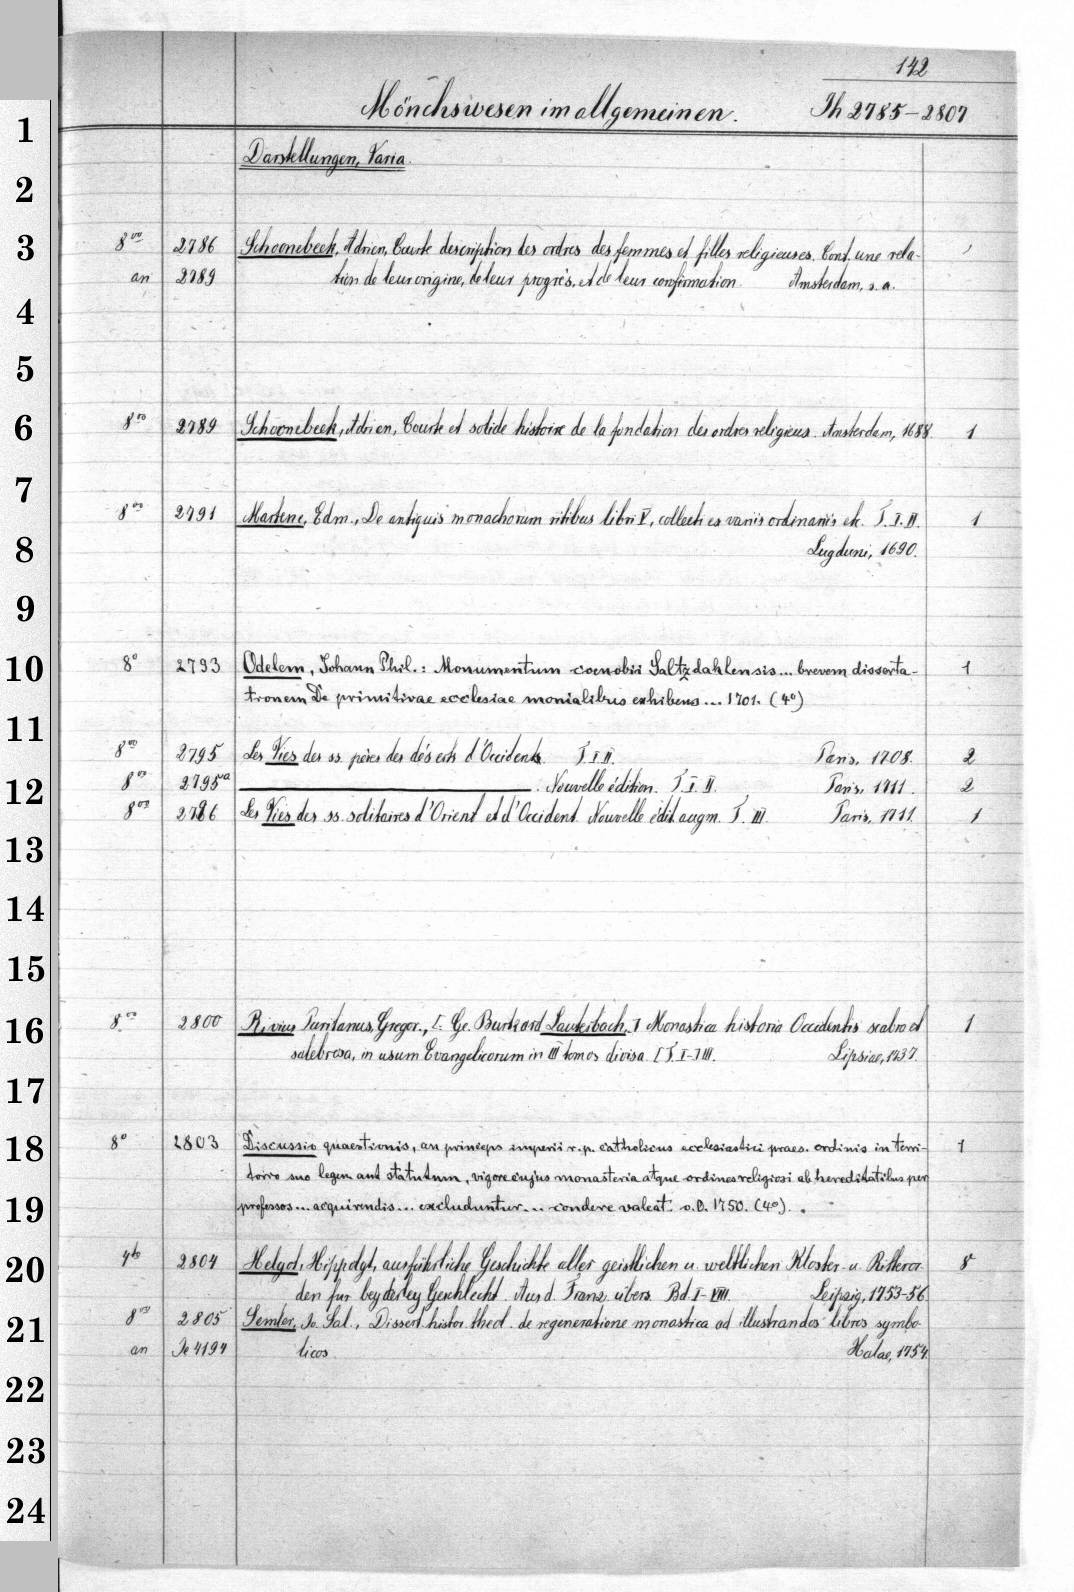 142
Mönchswesen im allgemeinen. Th 2785-2807
1
Darstellungen, Varia.
2
3 8vo 2786 Schoonebeek, Adrien, Courte description des ordres des femmes et filles religieuses. Cont. une rela-
an 2789 tion de leur origine, de leur progrès, et de leur confirmation. Amsterdam, s. a.
4
5
6 8vo 2789 Schoonebeek, Adrien, Courte et solide histoire de la fondation des ordres religieus. Amsterdam, 1688. 1
7
8vo 2791 Martene, Edm., De antiquis monachorum ritibus libri V, collecti ex variis ordinariis etc. T. I. II. 1
8 Lugduni, 1690.
9
10 8° 2793 Odelem, Johann Phil.: Monumentum coenobii Saltzdahlensis... brevem disserta- 1
tionem De primitivae ecclesiae monialibus exhibens... 1701. (4°)
11
8vo 2795 Les Vies des ss. pères des déserts d'Occident. T. I II. Paris, 1708. 2
12 8vo 2795a . Nouvelle édition. T. I II. Paris, 1711. 2
8vo 2796 Les Vies des ss. solitaires d'Orient et d'Occident. Nouvelle édit. augm. T. III. Paris, 1711. 1
13
14
15
16 8vo 2800 Rivius Puritanus, Gregor., [: Ge. Burkard Lauterbach,] Monastica historia Occidentis scabro et 1
salebrosa, in usum Evangelicorum in III tomos divisa. [T. I-III. Lipsiae, 1737.
17
18 8° 2803 Discussio quaestionis, an princeps imperii r. p. catholicus ecclesiastici praes. ordinis in terri- 1
torio suo legem aut statutum, vigore cujus monasteria atque ordines religiosi ab hereditatibus per
19 professos... acquirendis... excluduntur... condere valeat. o.O. 1750. (4°).
20 4to 2804 Helyot, Hippolyt, ausführliche Geschichte aller geistlichen u. weltlichen Kloster- u. Ritteror- 8
den für beyderley Geschlecht. Aus d. Franz. übers. Bd. I-VIII. Leipzig, 1753-56.
21 8vo 2805 Semler, Jo. Sal., Dissert. histor. theol. de regeneratione monastica ad illustrandos libros symbo-
an Te 4197 licos. Halae, 1754.
22
23
24